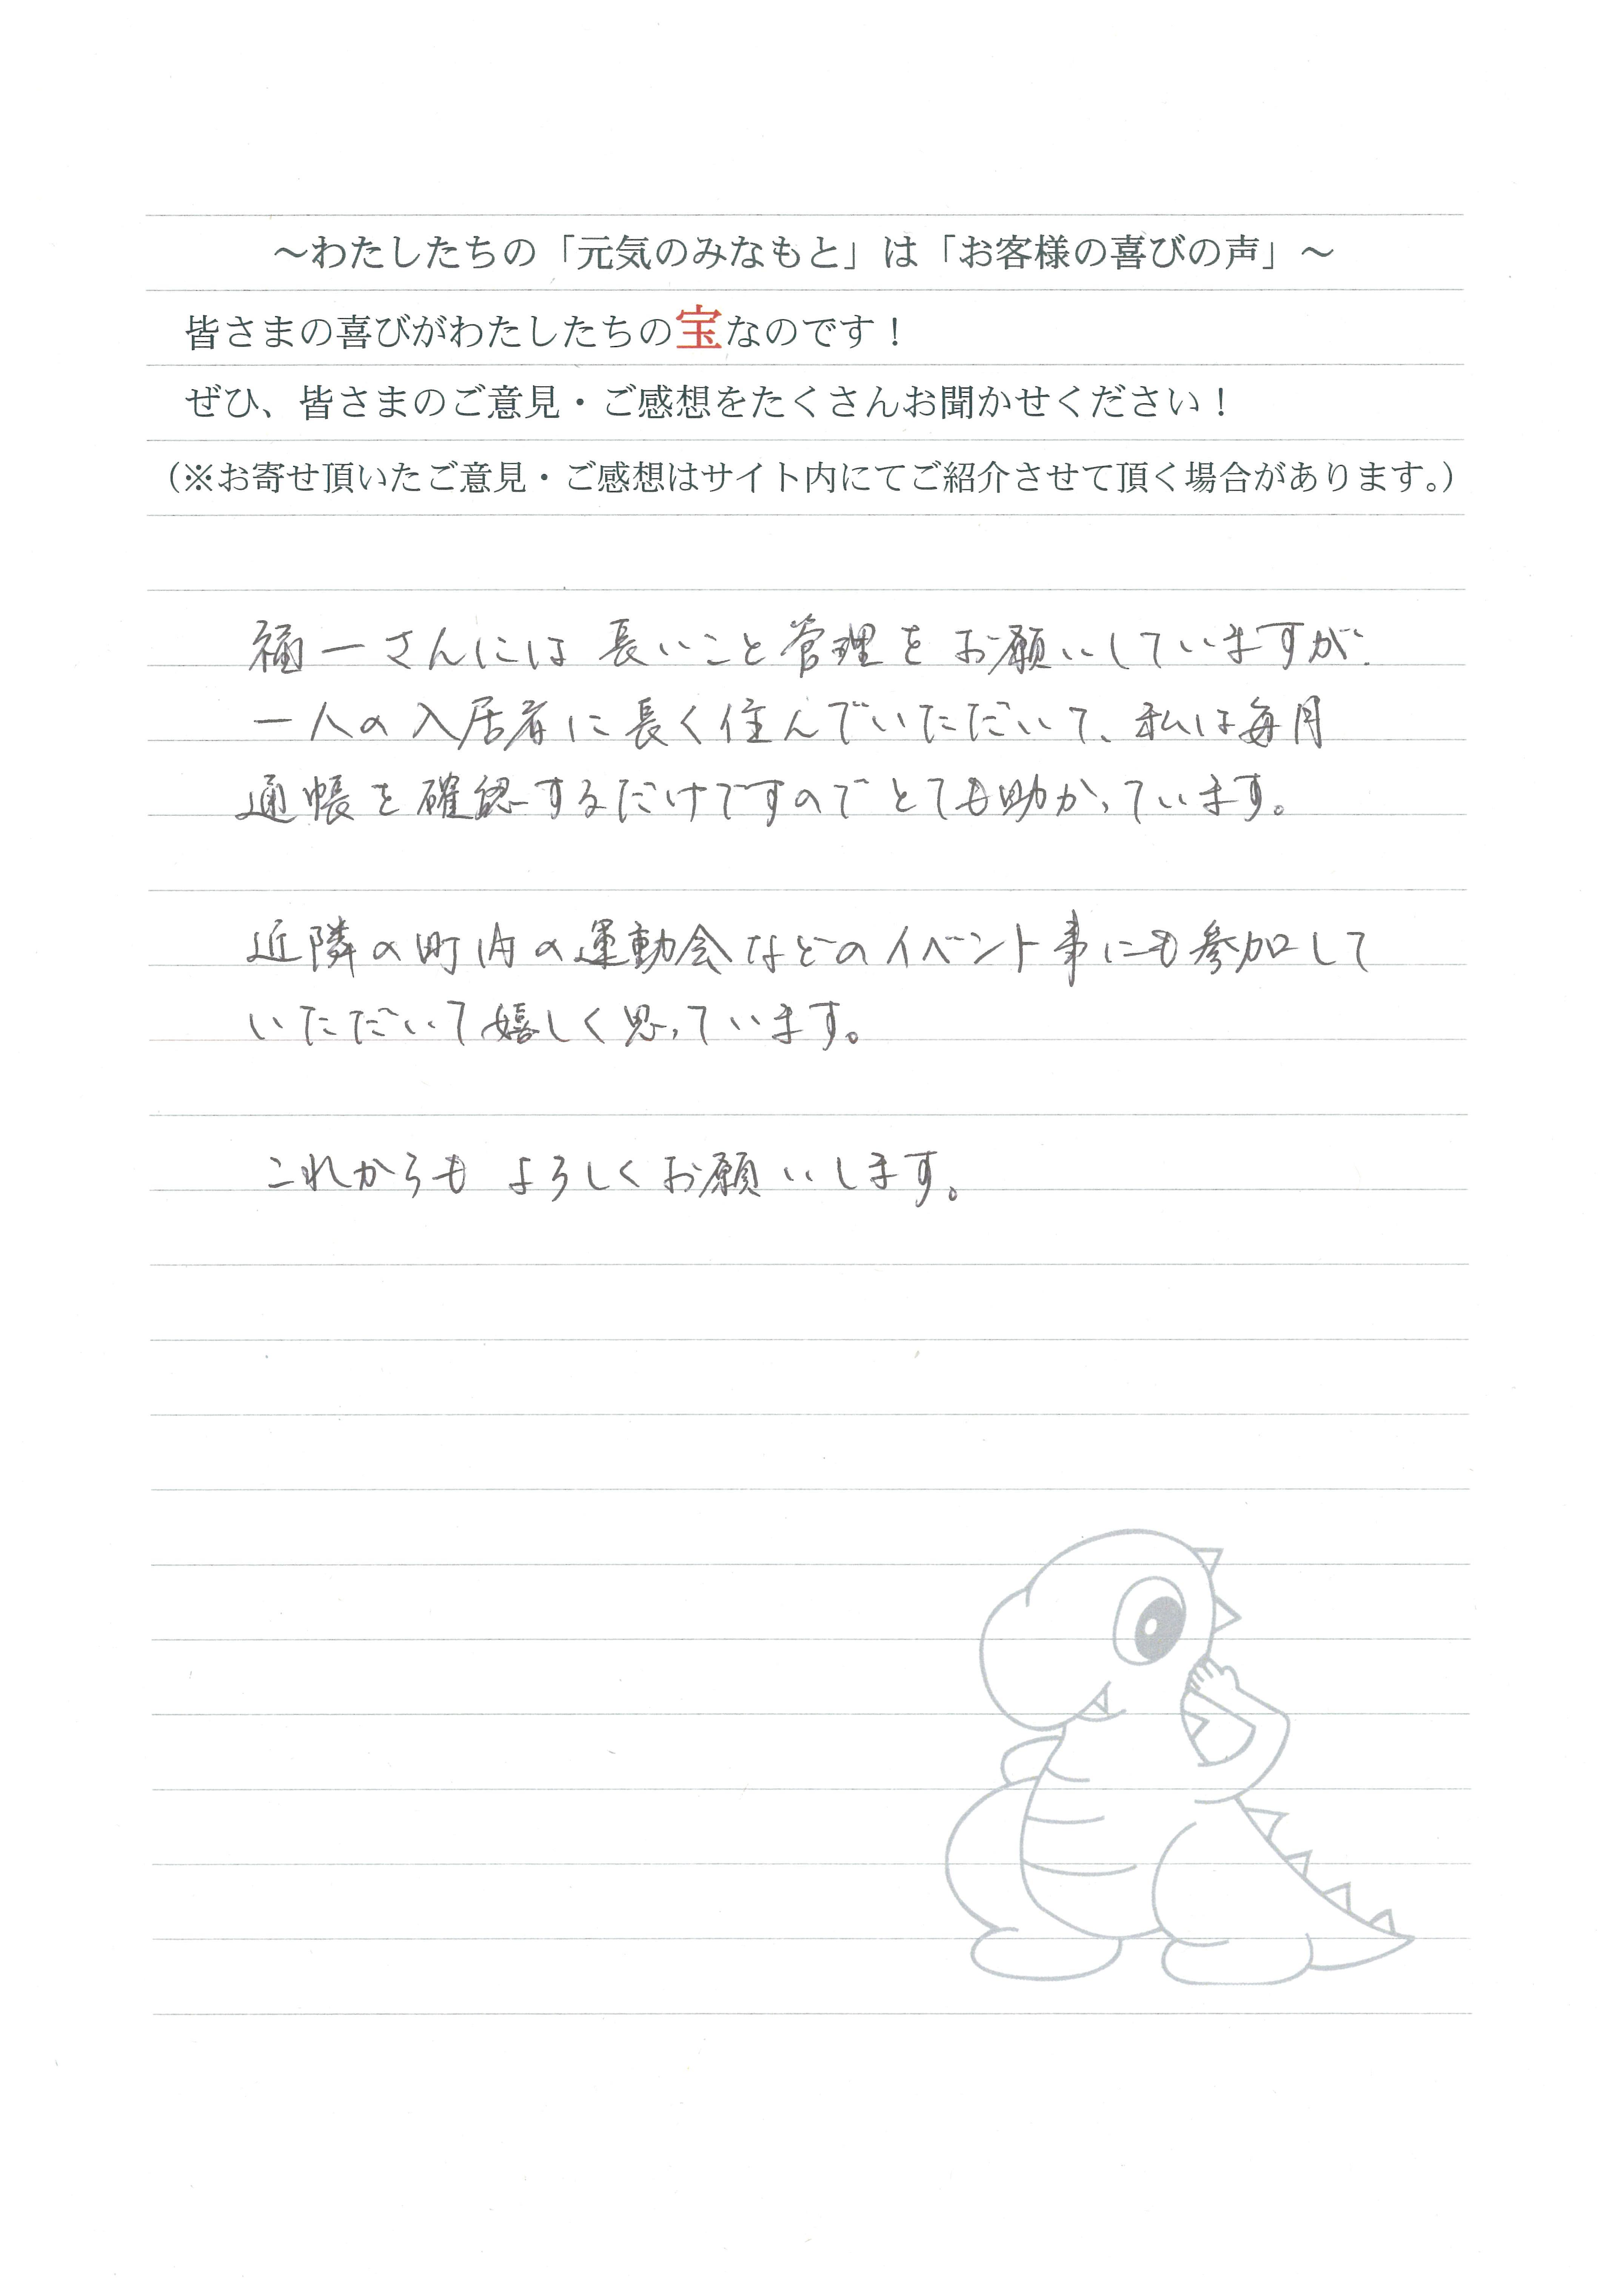 ～わたしたちの「元気のみなもと」は「お客様の喜びの声」～
皆さまの喜びがわたしたちの宝なのです！
ぜひ、皆さまのご意見・ご感想をたくさんお聞かせください！
（※お寄せ頂いたご意見・ご感想はサイト内にてご紹介させて頂く場合があります。）
福一さんには長いこと管理をお願いしていますが、
一人の入居者に長く住んでいただいて、私は毎月
通帳を確認するだけですのでとても助かっています。
近隣の町内の運動会などのイベント事にも参加して
いただいて嬉しく思っています。
これからもよろしくお願いします。